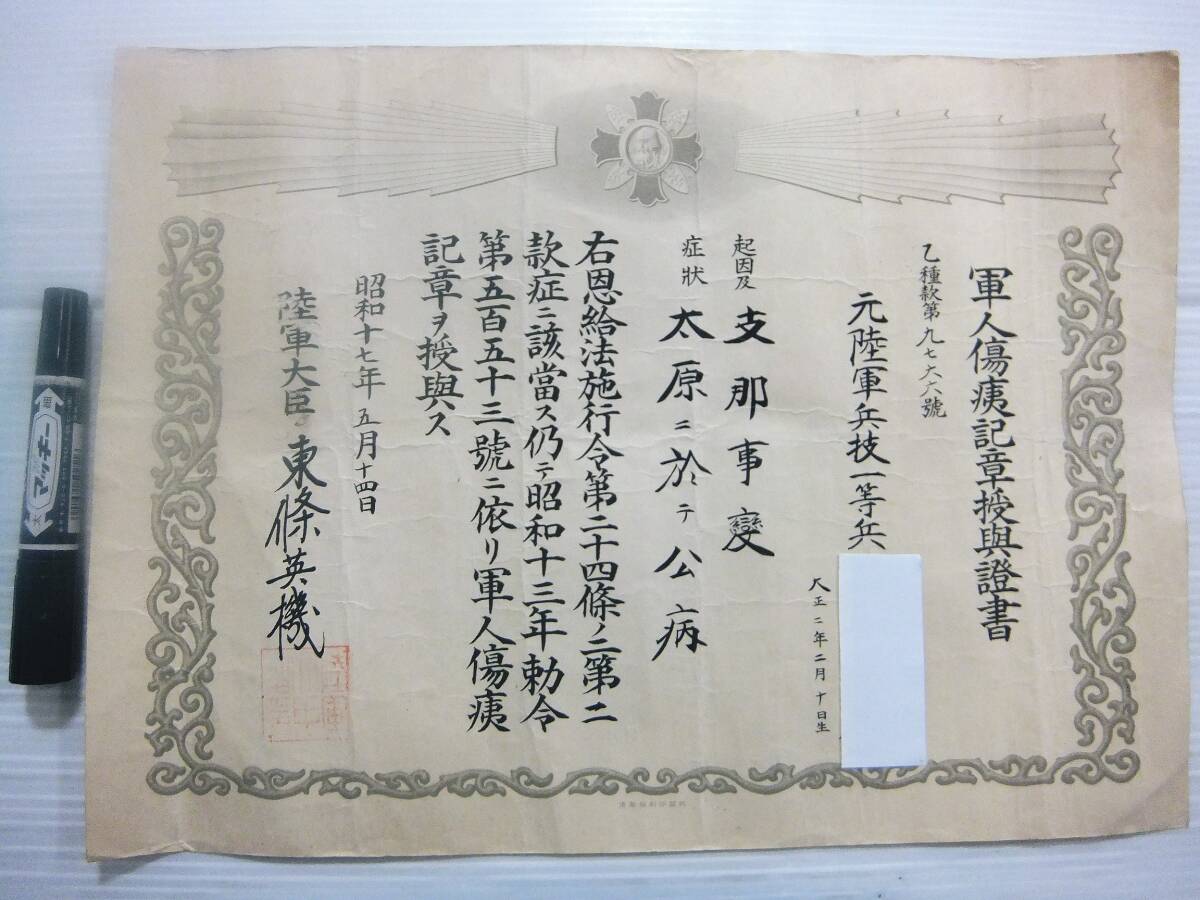 軍人傷痍記章授與證書
乙種款第九七六六號
元陸軍兵技一等兵
大正二年二月十日生
起因及
症狀
支那事變
太原ニ於テ公病
右恩給法施行令第二十四條ノ二第二
款症ニ該當ス仍テ昭和十三年勅令
第五百五十三號ニ依リ軍人傷痍
記章ヲ授與ス
昭和十七年五月十四日
陸軍大臣 東條英機
マッキー